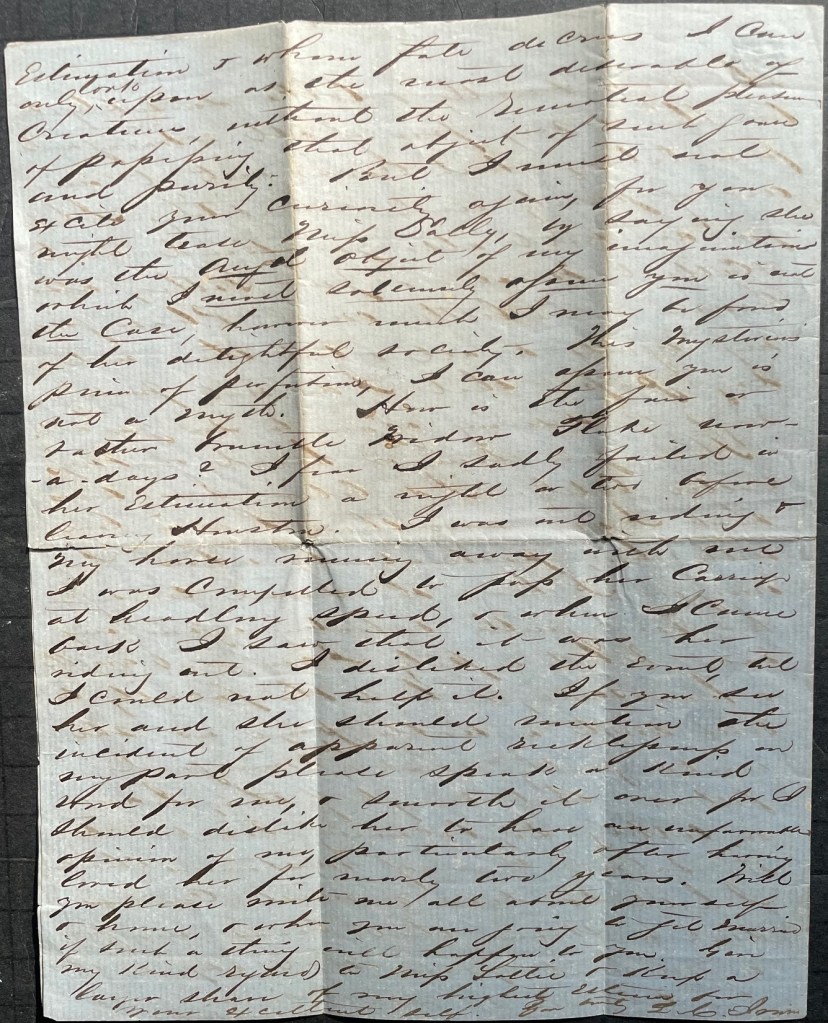 Estimation & whom fate decrees I can
only look upon as the most desirable of
Creation, without the remotest
of possessing that object of such
and purity. But I must not
excite your curiosity again, for you
might tease Miss Sally, by saying she
was the Angel Object of my imagination
which I most solemnly assure you is not
the Case, however much I may be fond
of her delightful society. This mysterious
of perfection, I can assure you is
not a myth. How is the fair or
rather Widow now-
-a-days? I fear I sadly failed in
her Estimation a night or two before
leaving Houston. I was out riding &
my horse running away with me
I was compelled to pass her Carriage
at headlong speed, & when I Came
back I saw that it was her
riding out. I disliked the event, but
I could not help it. If you see
her and she should mention the
incident of apparent recklessness on
my part please speak a kind
word for me, & smooth it over for I
should dislike her to have an unfavorable
opinion of me, particularly after having
loved her for nearly two years. Will
you please write me all about yourself
& home, & when you are going to get married
if such a thing will happen to you. Give
my kind regards to Miss & keep a
large share of my highest Esteem for
your Excellent self.